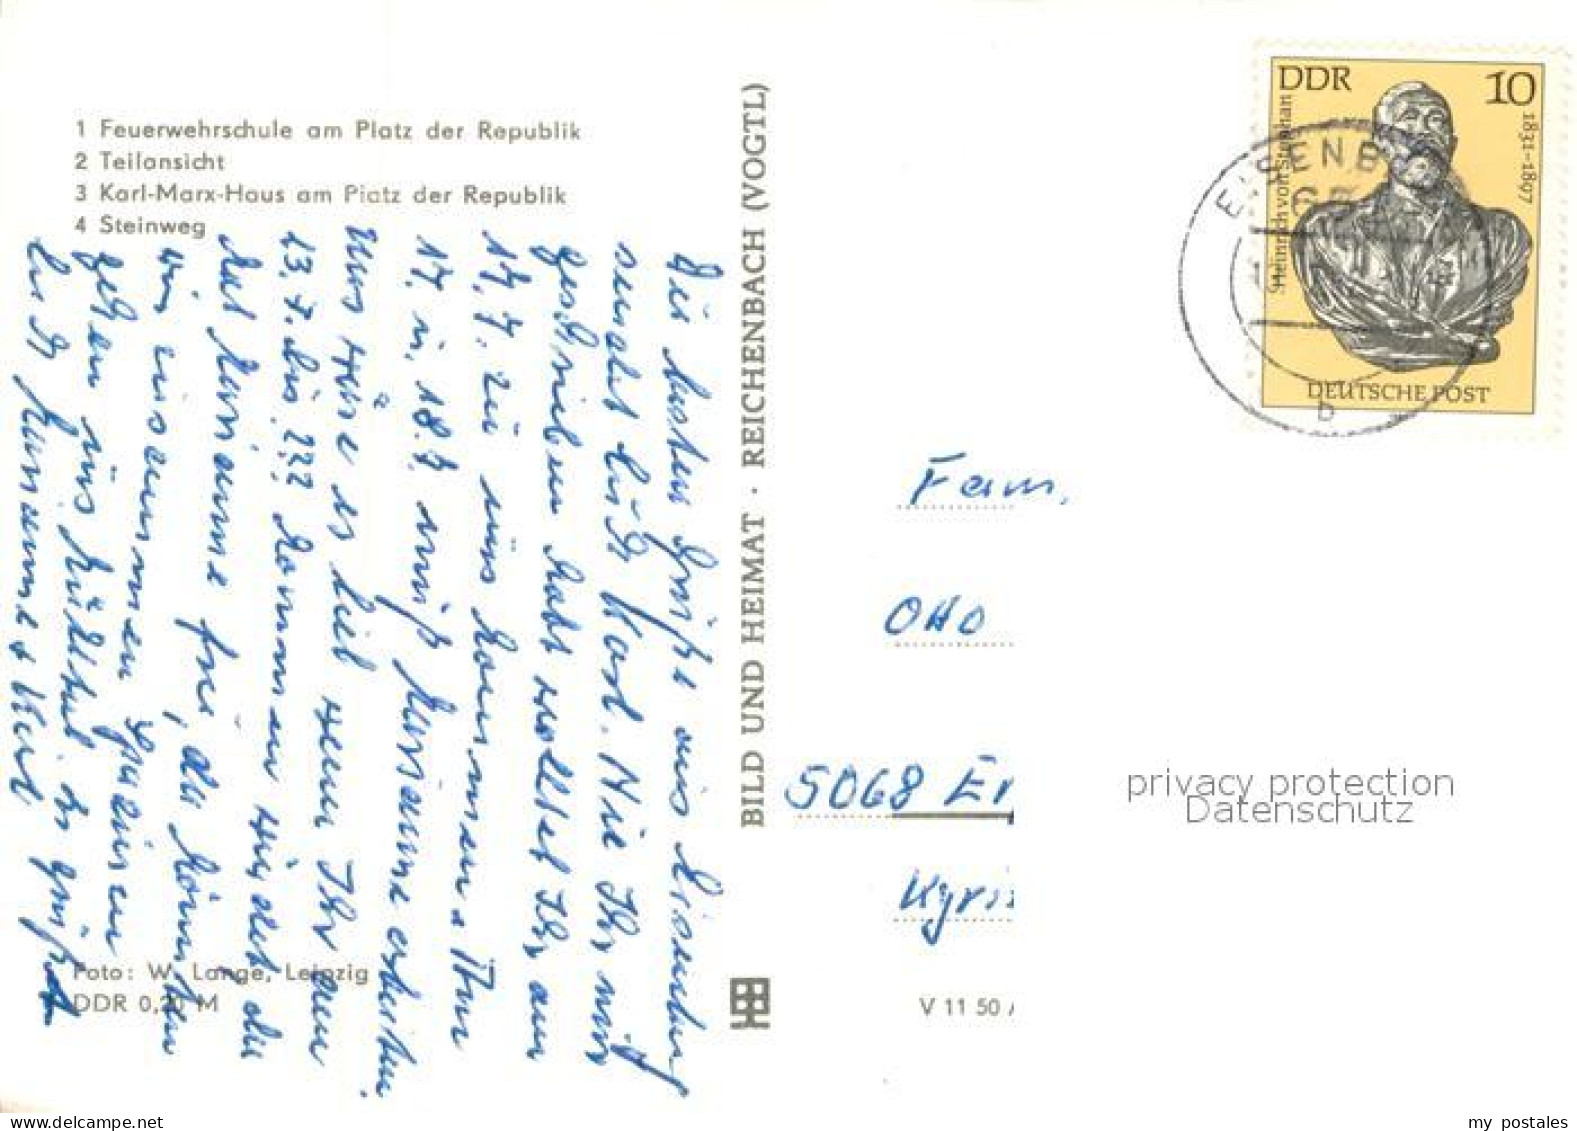 1 Feuerwehrschule am Platz der Republik
2 Teilansicht
3 Karl-Marx-Haus am Platz der Republik
4 Steinweg
Die besten Grüße aus Eisenberg
sendet Euch Kurt. Wie Ihr mir
geschrieben habt wolltet Ihr am
17.7. zu uns kommen. Am
17. u. 18.7. muß Marianne arbeiten.
Uns wäre es lieb wenn Ihr am
13.7. bis ??? kommen würdet da
hat Marianne frei, da könnten
wir zusammen
gehen uns. Es grüßt
Euch Marianne + Kurt
Foto: W. Lange, Leipzig
DDR 0,20 M
BILD UND HEIMAT · REICHENBACH (VOGTL)
DDR 10
Heinrich von Stephan
1831-1897
DEUTSCHE POST
EISENB
b
Fam.
Otto
5068 Er
Kyri
V 11 50
privacy protection
Datenschutz
www.delcampe.net
my postales